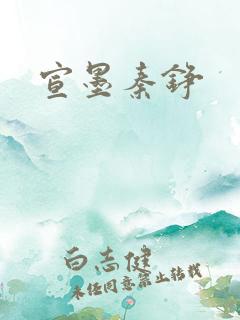 宣墨秦铮
白志健
未经同意禁止转载